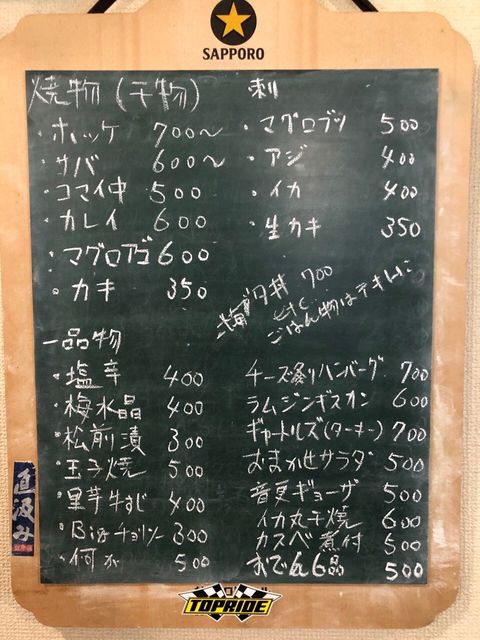 SAPPORO
焼物(干物)
・ホッケ 700〜
・サバ 600〜
・コマイ中 500
・カレイ 600
・マグロアゴ 600
・カキ 350
刺
・マグロブツ 500
・アジ 400
・イカ 400
・生カキ 350
丼 700
etc
ごはん物はテキトーに
一品物
・塩辛 400
・梅水晶 400
・松前漬 300
・玉子焼 500
・里芋牛すじ 400
・Bigチョリソー 300
・何か 500
チーズ炙りハンバーグ 700
ラムジンギスカン 600
ギャートルズ(ターキー) 700
おまかせサラダ 500
音更ギョーザ 500
イカ丸干焼 600
カスベ煮付 500
おでん6品 500
直汲み
TOPRIDE